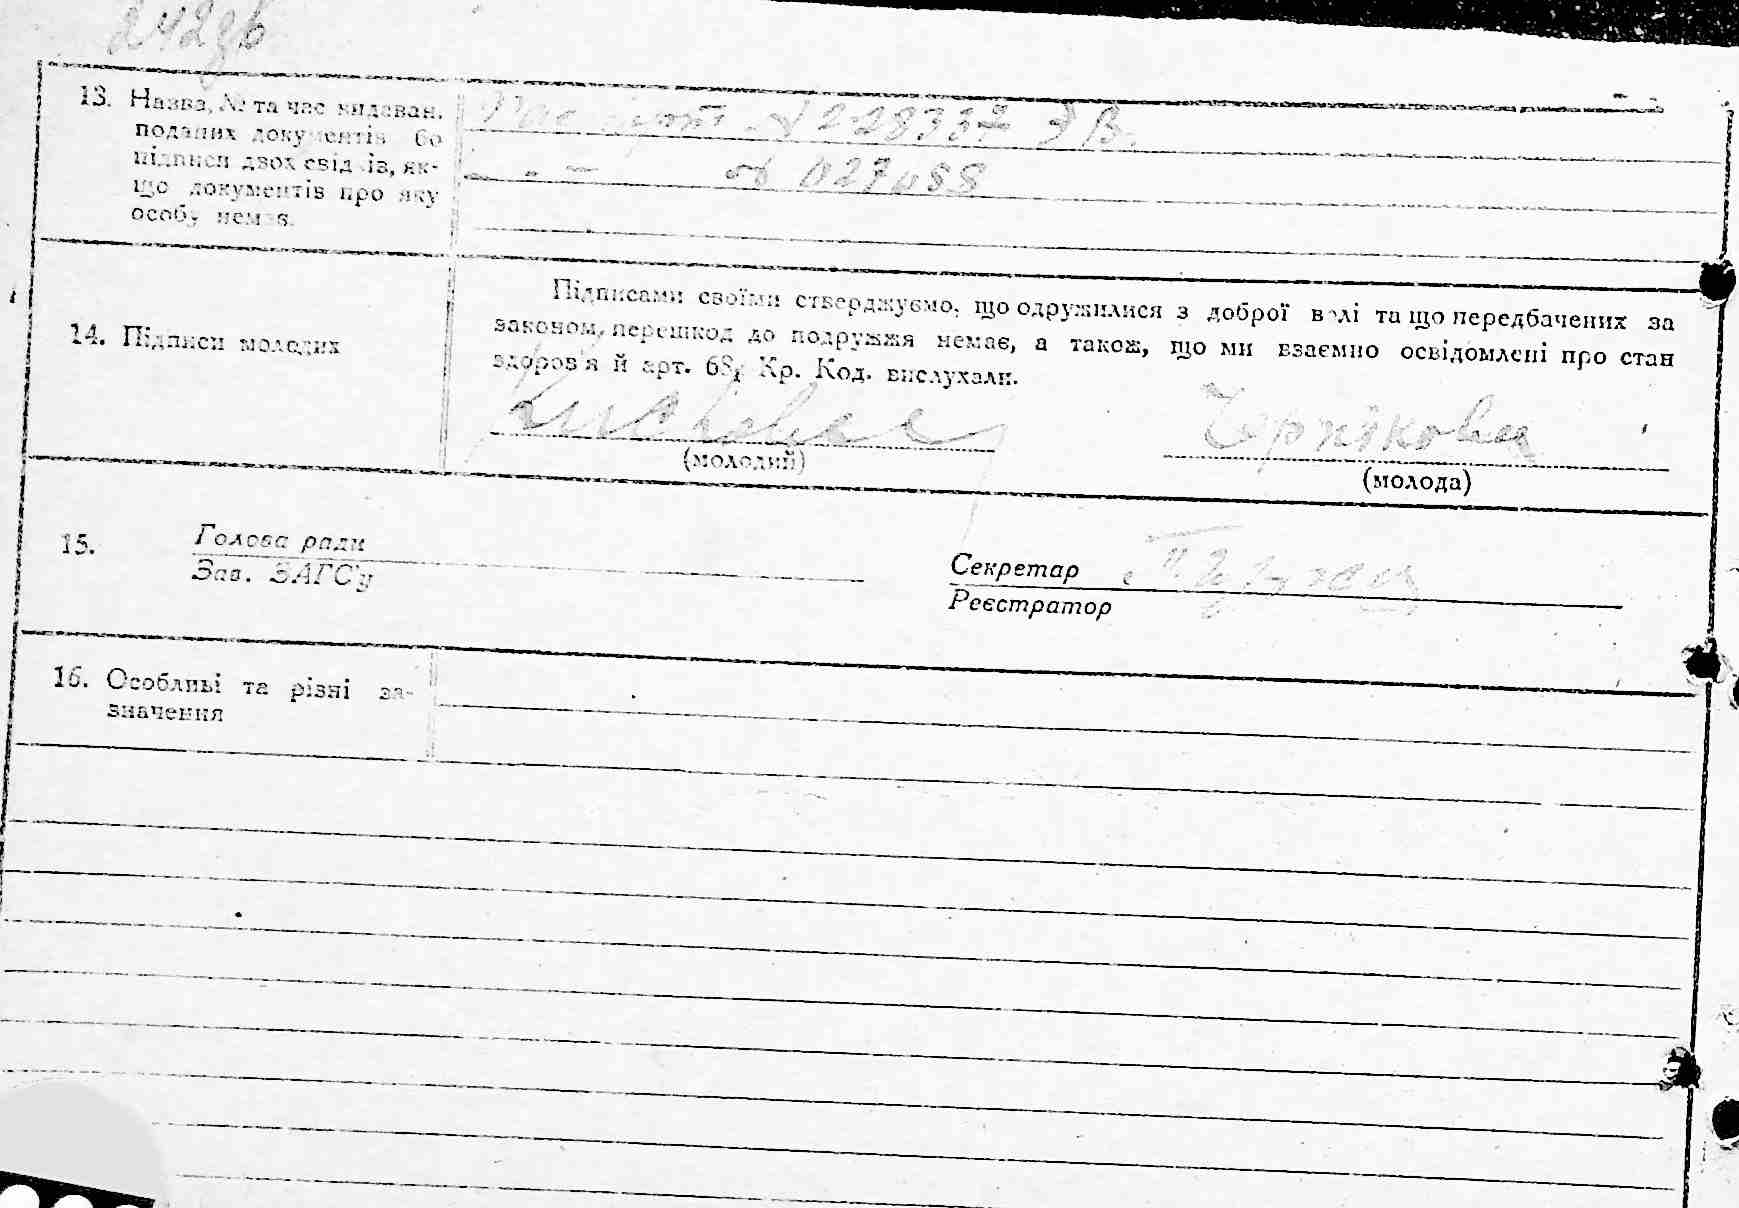 242зв
13. Назва, № та час видаван.
поданих документів бо
підписи двох свідків, як-
що документів про яку
особу немає.
Паспорт № 228337 ЭВ.
— " — № 027088
14. Підписи молодих
Підписами своїми стверджуємо, що одружилися з доброї волі та що передбачених за
законом, перешкод до подружжя немає, а також, що ми взаємно освідомлені про стан
здоров'я й арт. 68₁ Кр. Код. вислухали.
(молодий)
(молода)
15.
Голова ради
Зав. ЗАГС'у
Секретар
Реєстратор
16. Особливі та різні за-
значення